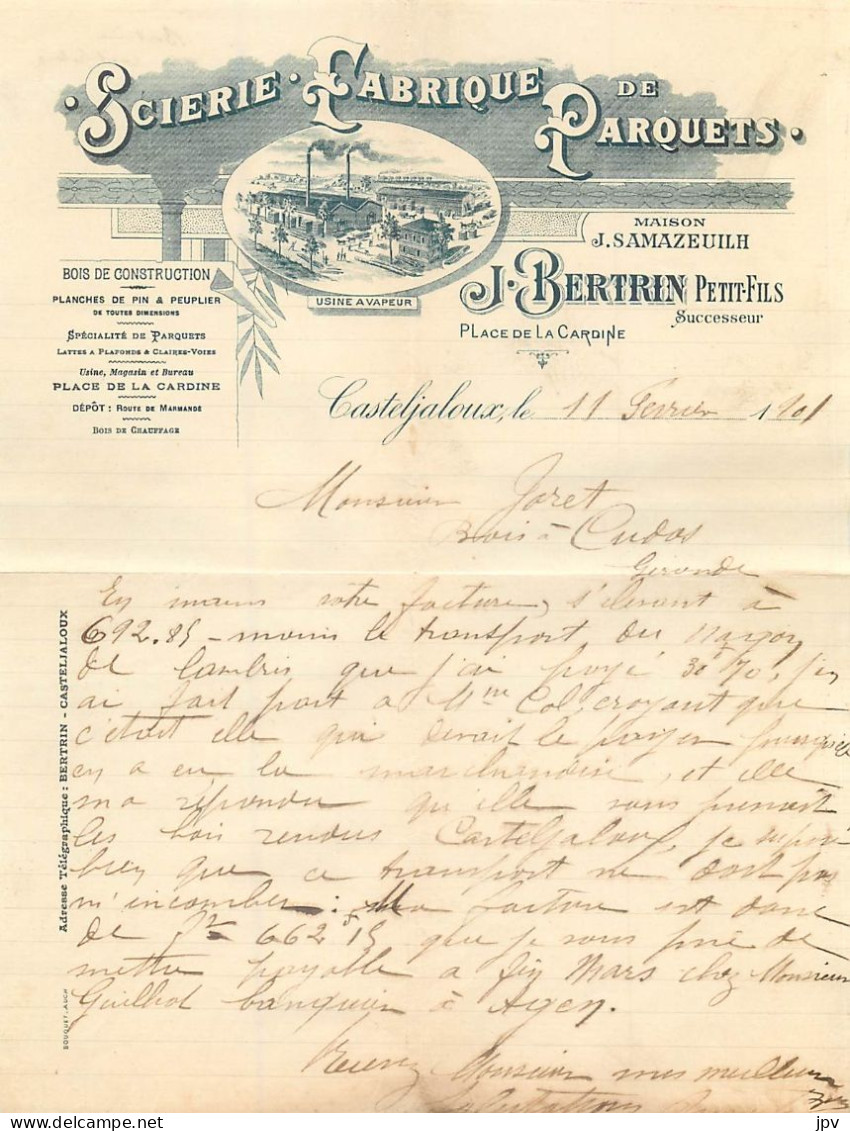 SCIERIE · FABRIQUE DE PARQUETS
MAISON
J. SAMAZEUILH
J. BERTRIN PETIT-FILS
Successeur
PLACE DE LA CARDINE
USINE A VAPEUR
BOIS DE CONSTRUCTION
PLANCHES DE PIN & PEUPLIER
DE TOUTES DIMENSIONS
SPÉCIALITÉ DE PARQUETS
LATTES A PLAFONDS & CLAIRES-VOIES
Usine, Magasin et Bureau
PLACE DE LA CARDINE
DÉPÔT : ROUTE DE MARMANDE
BOIS DE CHAUFFAGE
Casteljaloux, le 11 Fevrier 1901
Monsieur Joret
Bois à Cudos
Gironde
En mains votre facture, s'élevant à
692.85 - moins le transport du wagon
de lambris que j'ai payé 30f70, j'en
ai fait part a Mme Col, croyant que
c'était elle qui devait le payer puisqu'elle
en a eu la marchandise, et elle
m'a répondu qu'elle vous prenait
les bois rendus Casteljaloux, je suppose
bien que ce transport ne doit pas
m'incomber : Ma facture est donc
de 662f15 que je vous prie de
mettre payable a fin Mars chez Monsieur
Guilhot banquier à Agen.
Recevez Monsieur mes meilleures
salutations
Adresse Télégraphique : BERTRIN - CASTELJALOUX
BOUQUET, AUCH
jpv